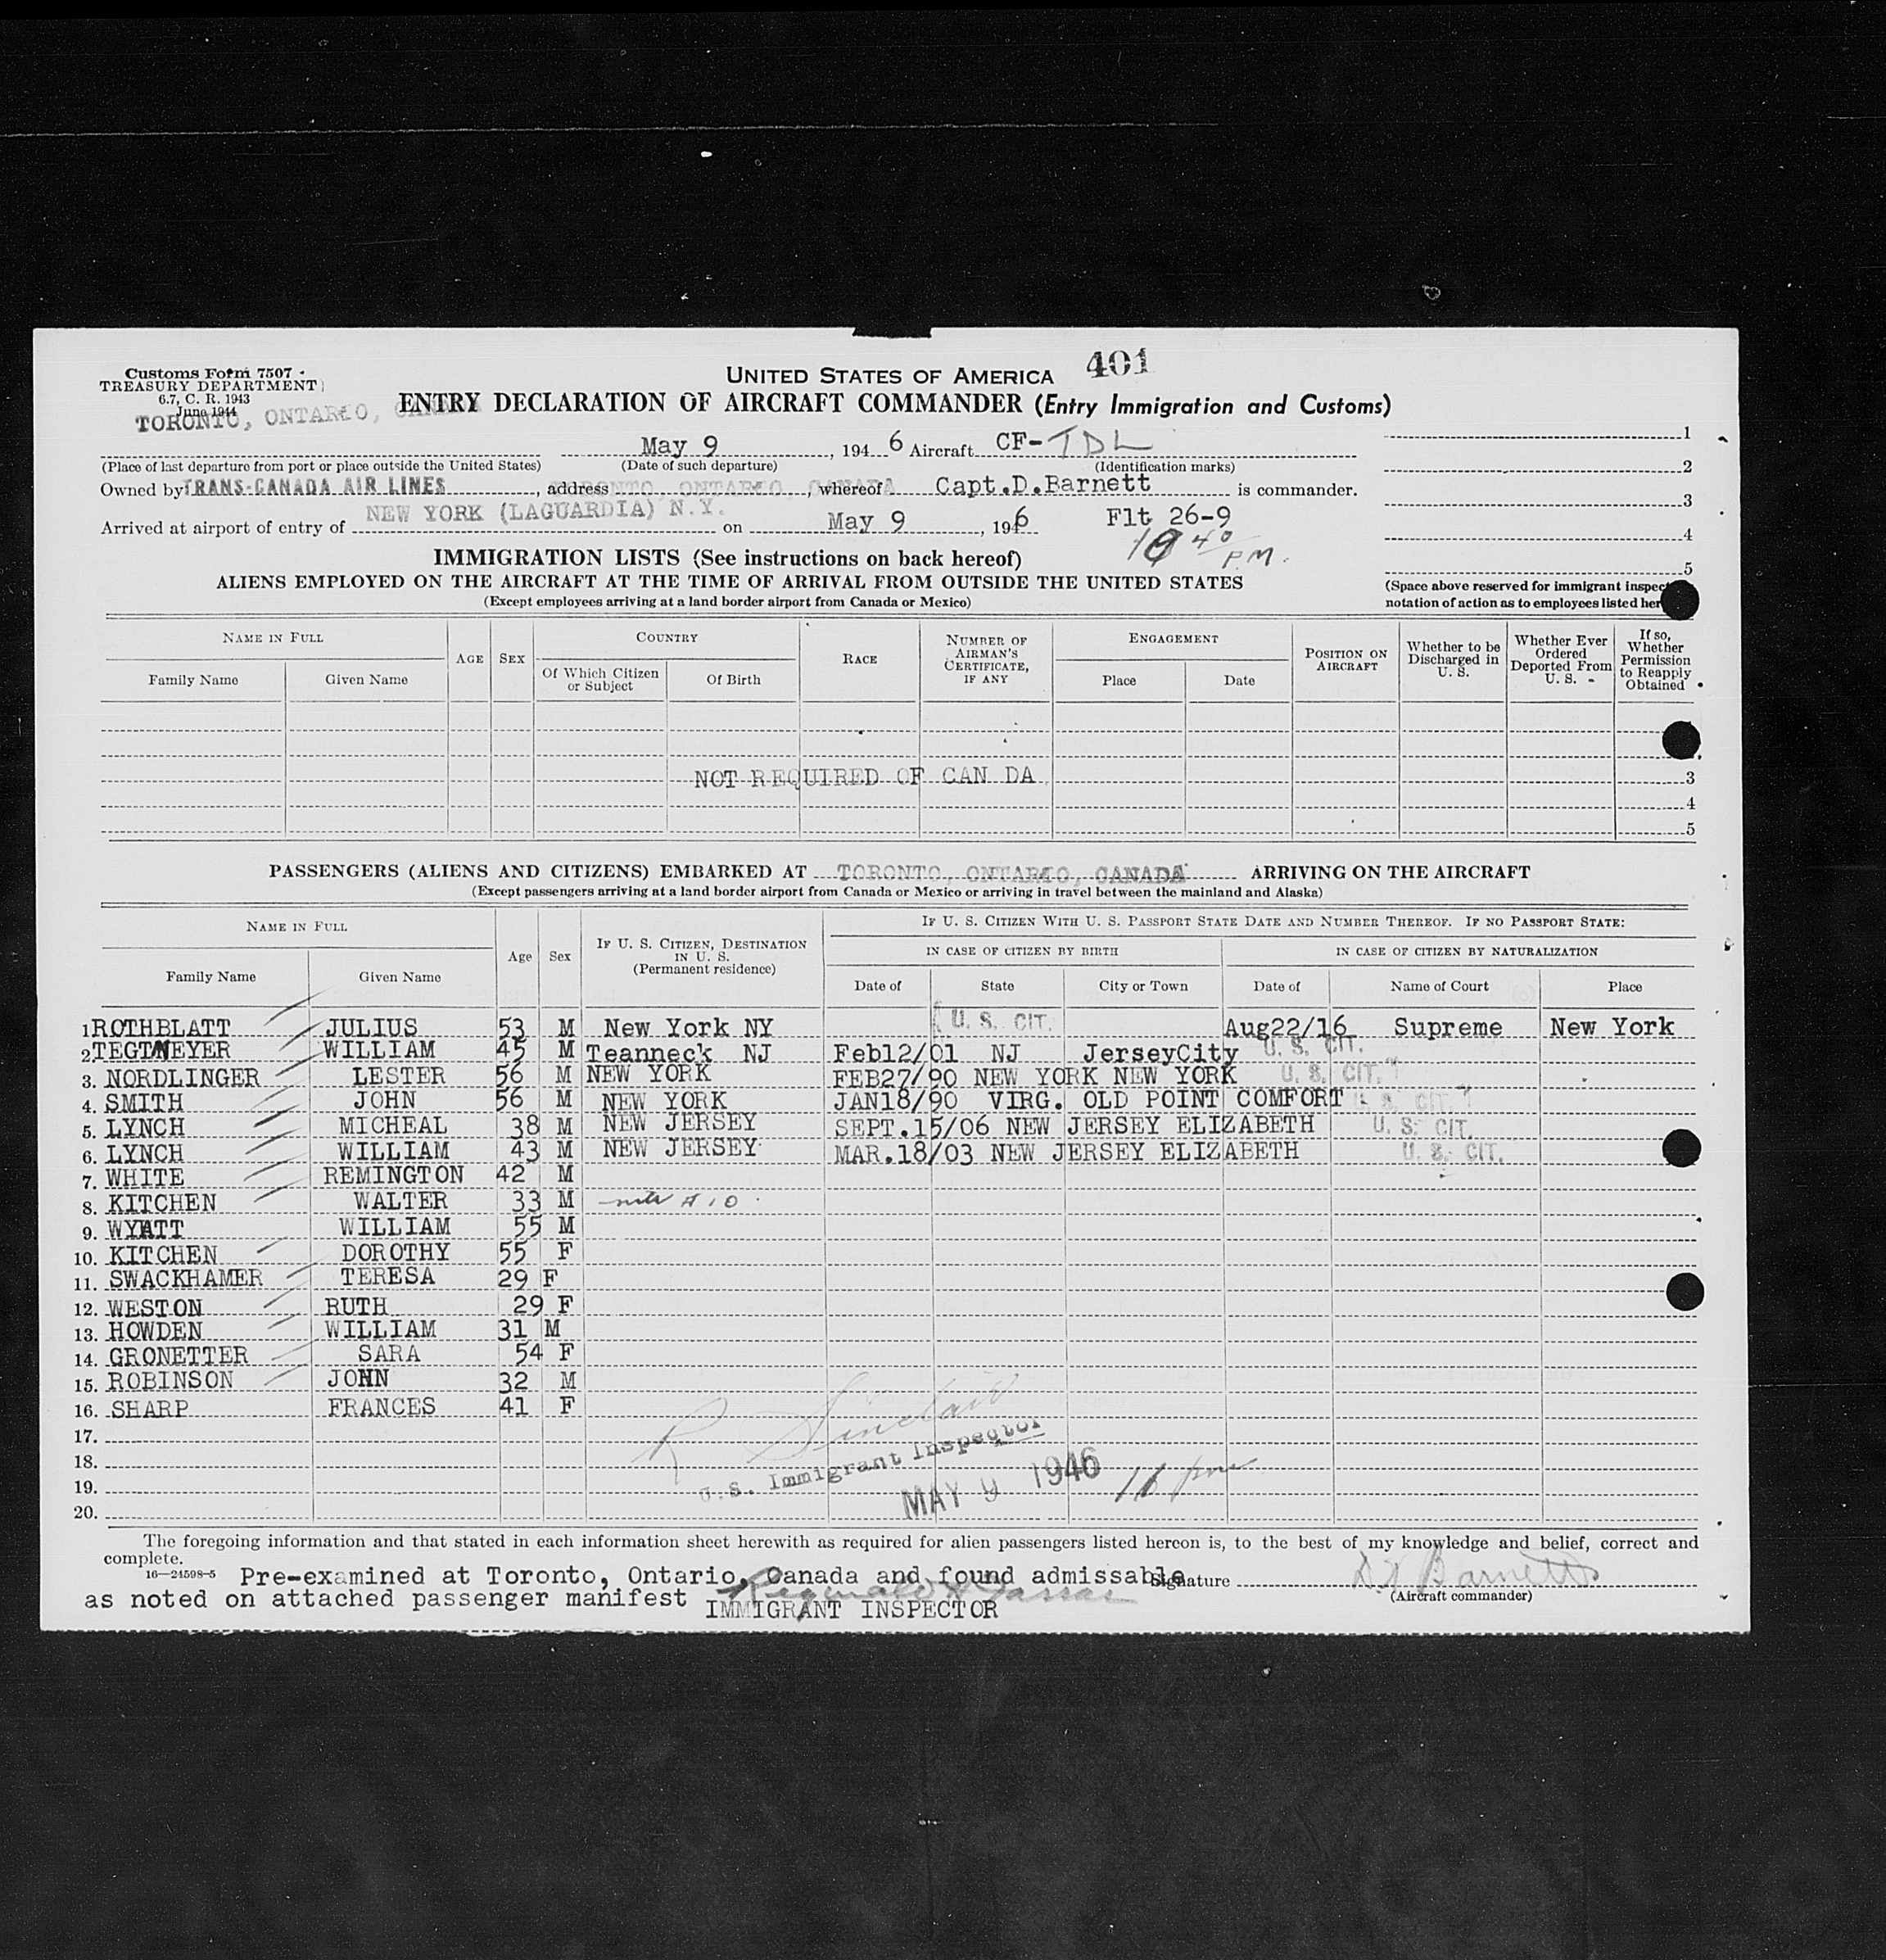 401
Customs Form 7507
UNITED STATES OF AMERICA
TREASURY DEPARTMENT
6.7, C. R. 1943
June 1944
ENTRY DECLARATION OF AIRCRAFT COMMANDER (Entry Immigration and Customs)
TORONTO, ONTARIO, CANADA
May 9, 1946 Aircraft CF-TDL 1
(Place of last departure from port or place outside the United States) (Date of such departure) (Identification marks) 2
Owned by TRANS-CANADA AIR LINES, address TORONTO, ONTARIO, CANADA, whereof Capt.D.Barnett is commander. 3
Arrived at airport of entry of NEW YORK (LAGUARDIA) N.Y. on May 9, 1946 Flt 26-9 4
10 40 P.M. 5
IMMIGRATION LISTS (See instructions on back hereof)
ALIENS EMPLOYED ON THE AIRCRAFT AT THE TIME OF ARRIVAL FROM OUTSIDE THE UNITED STATES (Space above reserved for immigrant inspec
(Except employees arriving at a land border airport from Canada or Mexico) notation of action as to employees listed her
NAME IN FULL
Family Name Given Name
AGE SEX
COUNTRY
Of Which Citizen or Subject Of Birth
RACE
NUMBER OF AIRMAN'S CERTIFICATE, IF ANY
ENGAGEMENT
Place Date
POSITION ON AIRCRAFT
Whether to be Discharged in U. S.
Whether Ever Ordered Deported From U. S.
If so, Whether Permission to Reapply Obtained
NOT REQUIRED OF CAN DA 3
4
5
PASSENGERS (ALIENS AND CITIZENS) EMBARKED AT TORONTO, ONTARIO, CANADA ARRIVING ON THE AIRCRAFT
(Except passengers arriving at a land border airport from Canada or Mexico or arriving in travel between the mainland and Alaska)
NAME IN FULL
Family Name Given Name
Age Sex
IF U. S. CITIZEN, DESTINATION IN U. S. (Permanent residence)
IF U. S. CITIZEN WITH U. S. PASSPORT STATE DATE AND NUMBER THEREOF. IF NO PASSPORT STATE:
IN CASE OF CITIZEN BY BIRTH IN CASE OF CITIZEN BY NATURALIZATION
Date of State City or Town Date of Name of Court Place
1 ROTHBLATT JULIUS 53 M New York NY U. S. CIT. Aug22/16 Supreme New York
2 TEGTMEYER WILLIAM 45 M Teanneck NJ Feb12/01 NJ JerseyCity U. S. CIT.
3. NORDLINGER LESTER 56 M NEW YORK FEB27/90 NEW YORK NEW YORK U. S. CIT.
4. SMITH JOHN 56 M NEW YORK JAN18/90 VIRG. OLD POINT COMFORT U. S. CIT.
5. LYNCH MICHEAL 38 M NEW JERSEY SEPT.15/06 NEW JERSEY ELIZABETH U. S. CIT.
6. LYNCH WILLIAM 43 M NEW JERSEY MAR.18/03 NEW JERSEY ELIZABETH U. S. CIT.
7. WHITE REMINGTON 42 M
8. KITCHEN WALTER 33 M #10
9. WYATT WILLIAM 55 M
10. KITCHEN DOROTHY 55 F
11. SWACKHAMER TERESA 29 F
12. WESTON RUTH 29 F
13. HOWDEN WILLIAM 31 M
14. GRONETTER SARA 54 F
15. ROBINSON JOHN 32 M
16. SHARP FRANCES 41 F
17.
18.
19.
20.
R Sinclair
U.S. Immigrant Inspector
MAY 9 1946 11 pm
The foregoing information and that stated in each information sheet herewith as required for alien passengers listed hereon is, to the best of my knowledge and belief, correct and
complete.
16—24598-5 Pre-examined at Toronto, Ontario, Canada and found admissable Signature Barnett
as noted on attached passenger manifest Reginald (Aircraft commander)
IMMIGRANT INSPECTOR